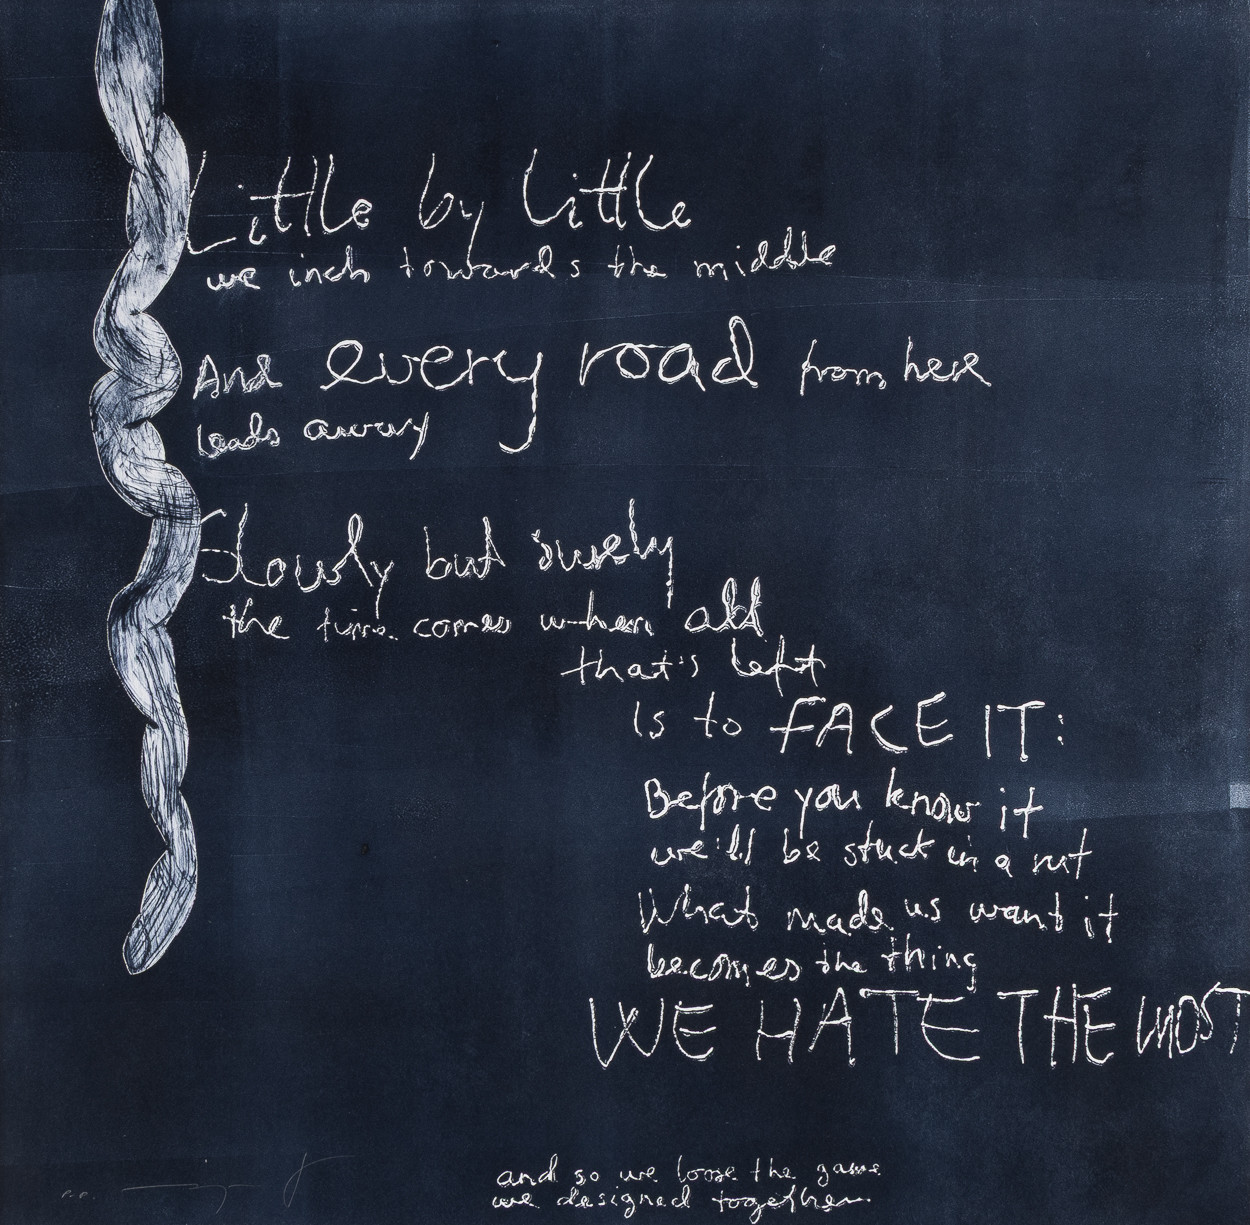 Little by Little
we inch towards the middle
And every road from here
leads away
Slowly but surely
the time comes when all
that's left
Is to FACE IT:
Before you know it
we'll be stuck in a rut
What made us want it
becomes the thing
WE HATE THE MOST
and so we loose the game
we designed together.